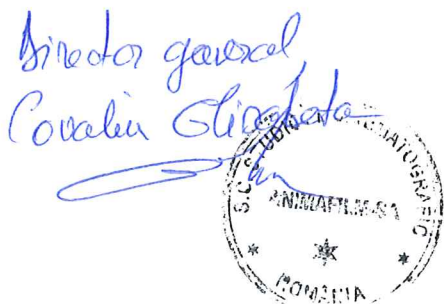 Director general,
Covaliu Elisabeta
S.C. STUDIOUL CINEMATOGRAFIC
ANIMAFILM-SA
ROMANIA